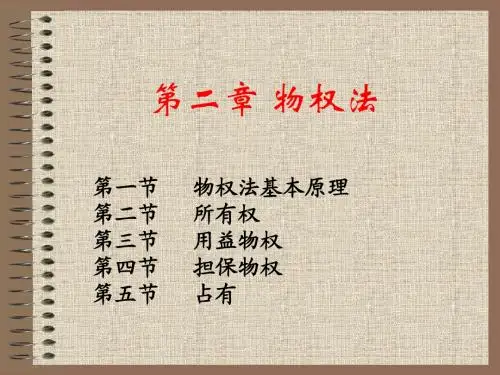 第二章 物权法
第一节 物权法基本原理
第二节 所有权
第三节 用益物权
第四节 担保物权
第五节 占有